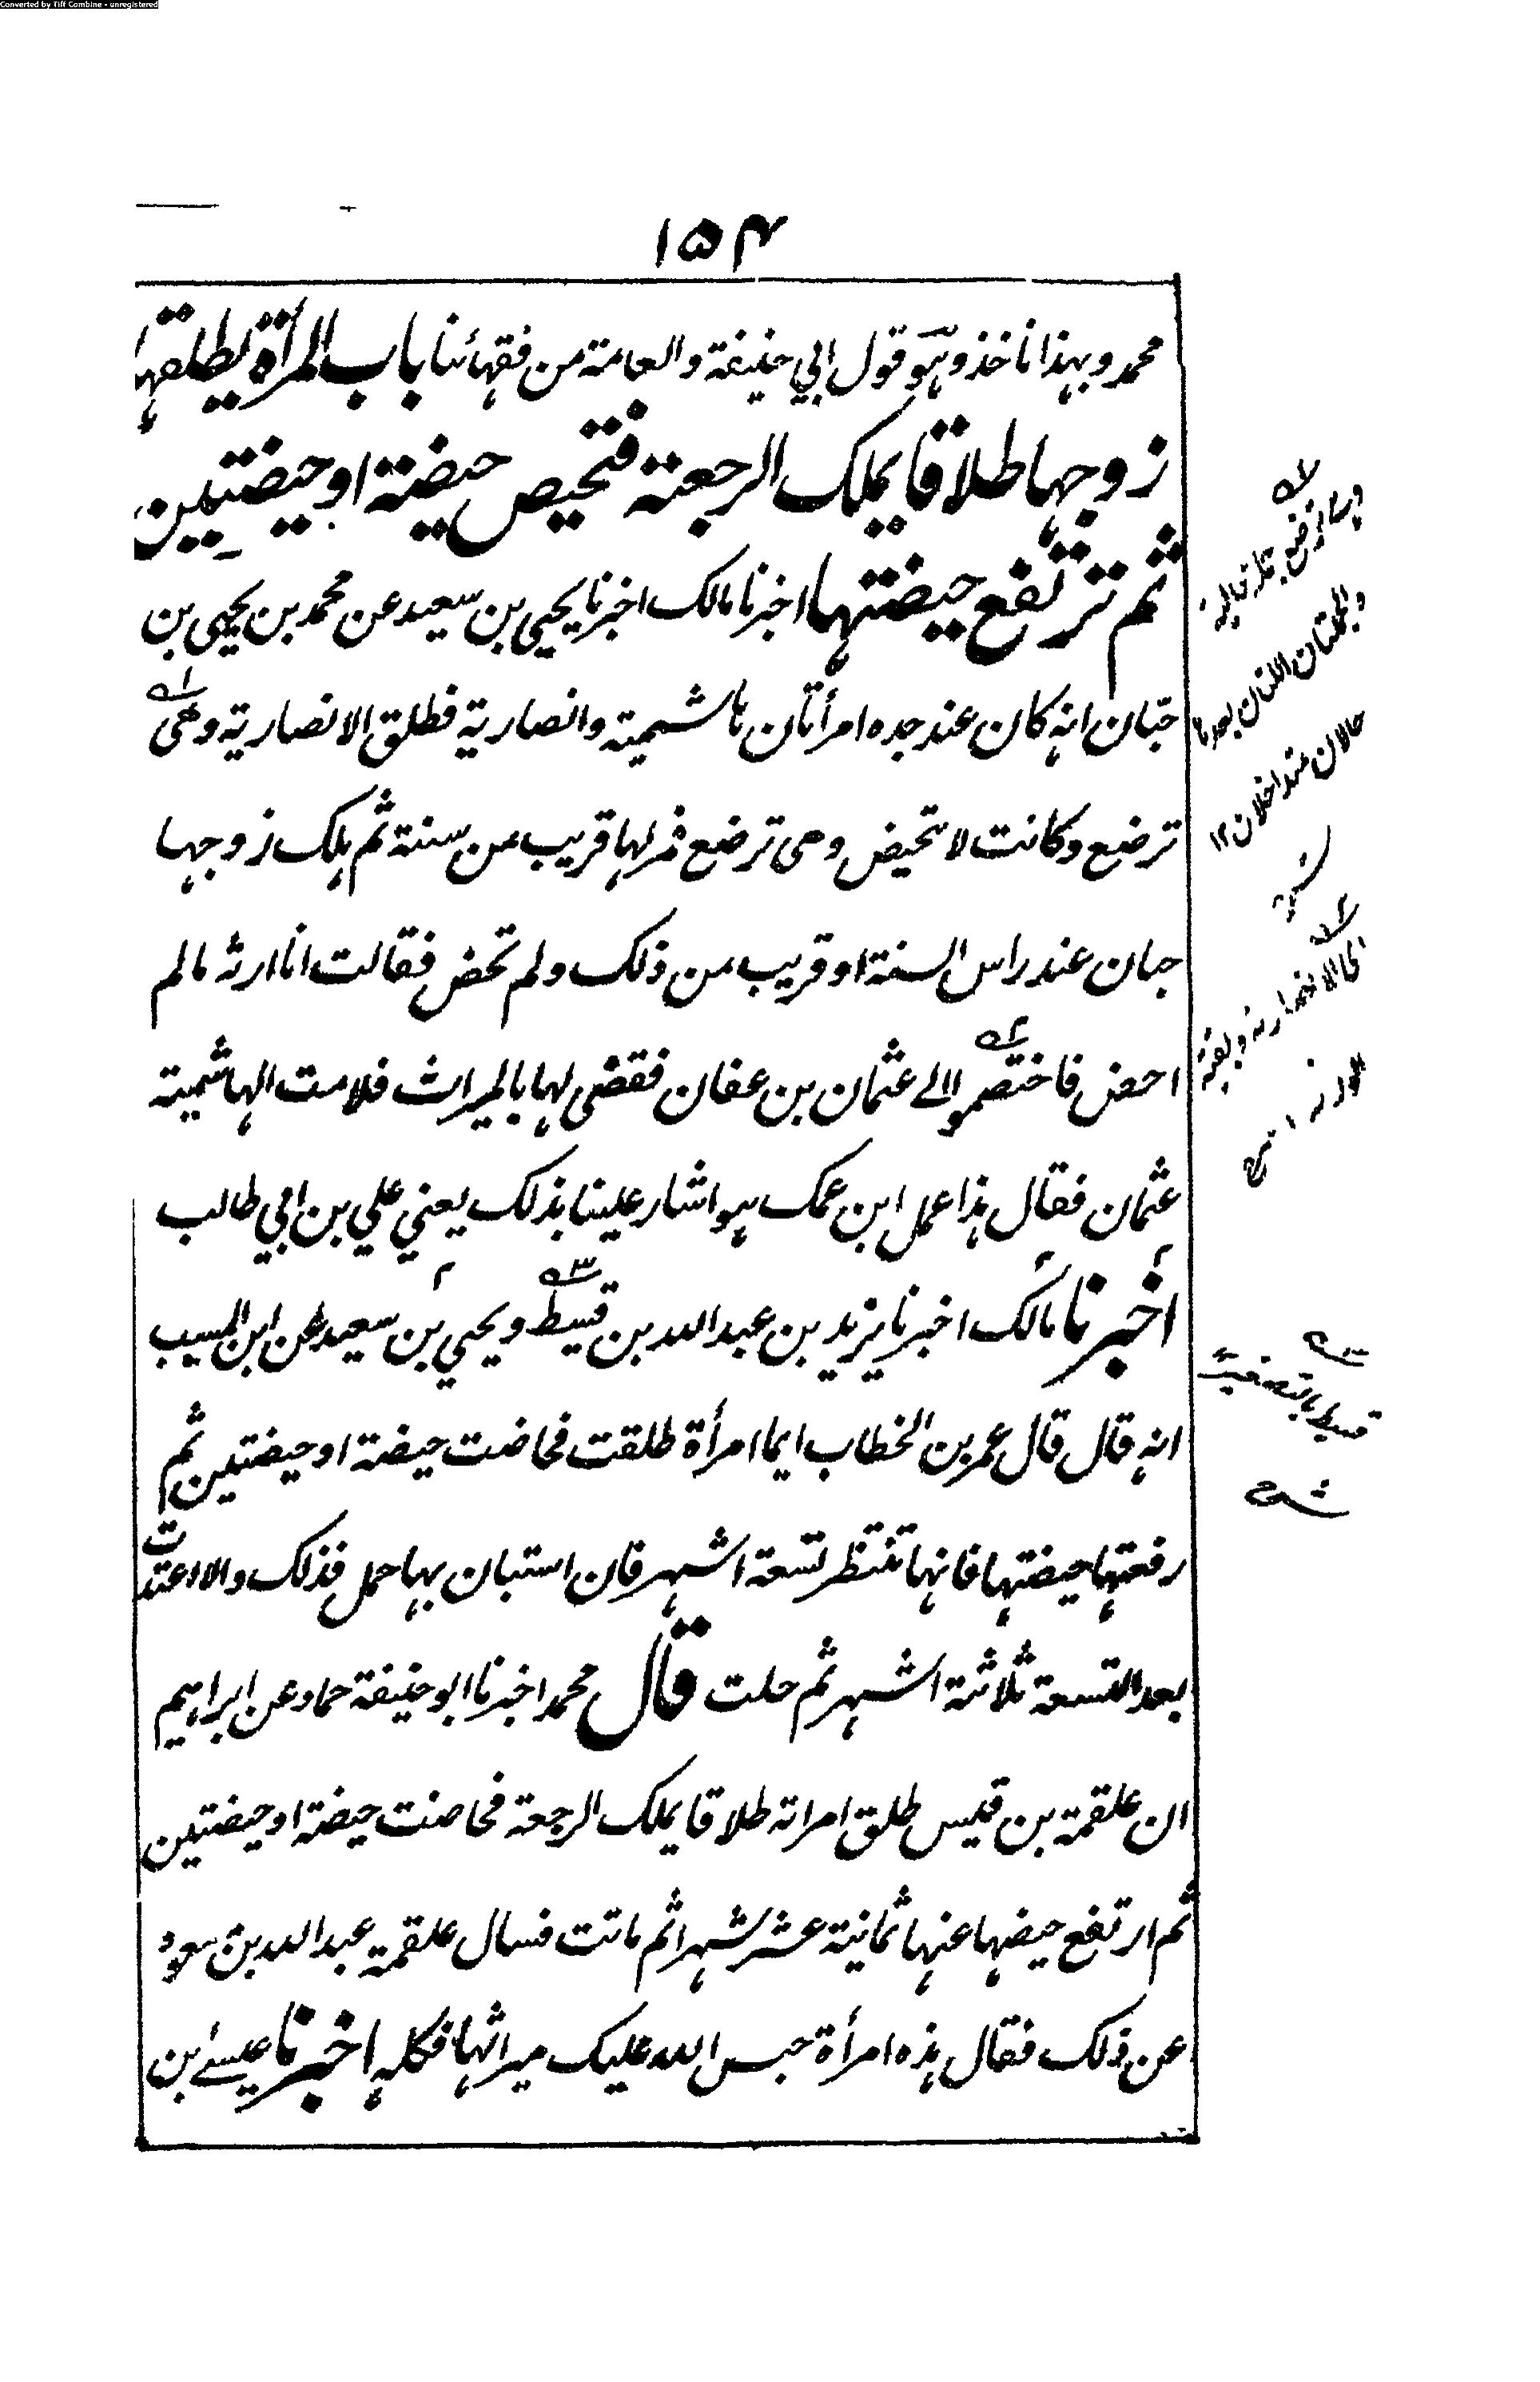 Converted by Tiff Combine - unregistered
۱۵۴
محمد وبهذا ناخذ وهو قول ابي حنيفة والعامة من فقهائنا باب المرأة يطلقها
زوجها طلاقا يملك الرجعة فتحيض حيضة او حيضتين
ثم ترتفع حيضتها اخبرنا مالك اخبرنا يحيى بن سعيد عن محمد بن يحيى بن
حبان انه كان عند جده امرأتان هاشمية وانصارية فطلق الانصارية وهى
ترضع وكانت لا تحيض وهى ترضع فمر لها قريب من سنة ثم هلك زوجها
حبان عند راس السنة او قريب من ذلك ولم تحض فقالت انا ارثه مالم
احض فاختصموا الى عثمان بن عفان فقضى لها بالميراث فلامت الهاشمية
عثمان فقال هذا عمل ابن عمك هو اشار علينا بذلك يعني علي بن ابي طالب
اخبرنا مالك اخبرنا يزيد بن عبد الله بن قسيط ويحيي بن سعيد عن ابن المسيب
انه قال قال عمر بن الخطاب ايما امرأة طلقت فحاضت حيضة او حيضتين ثم
رفعتها حيضتها فانها تنتظر تسعة اشهر فان استبان بها حمل فذلك والا اعتدت
بعد التسعة ثلاثة اشهر ثم حلت قال محمد اخبرنا ابو حنيفة حماد عن ابراهيم
ان علقمة بن قيس طلق امراته طلاقا يملك الرجعة فحاضت حيضة او حيضتين
ثم ارتفع حيضها عنها ثمانية عشر شهرا ثم ماتت فسال علقمة عبد الله بن مسعود
عن ذلك فقال هذه امرأة حبس الله عليك ميراثها فكله اخبرنا عيسى بن
والجملتان اللتان بعدها
حالان متداخلان ۱۲
اى الانصارية وبقية
الورثة
قسيط بالتصغير